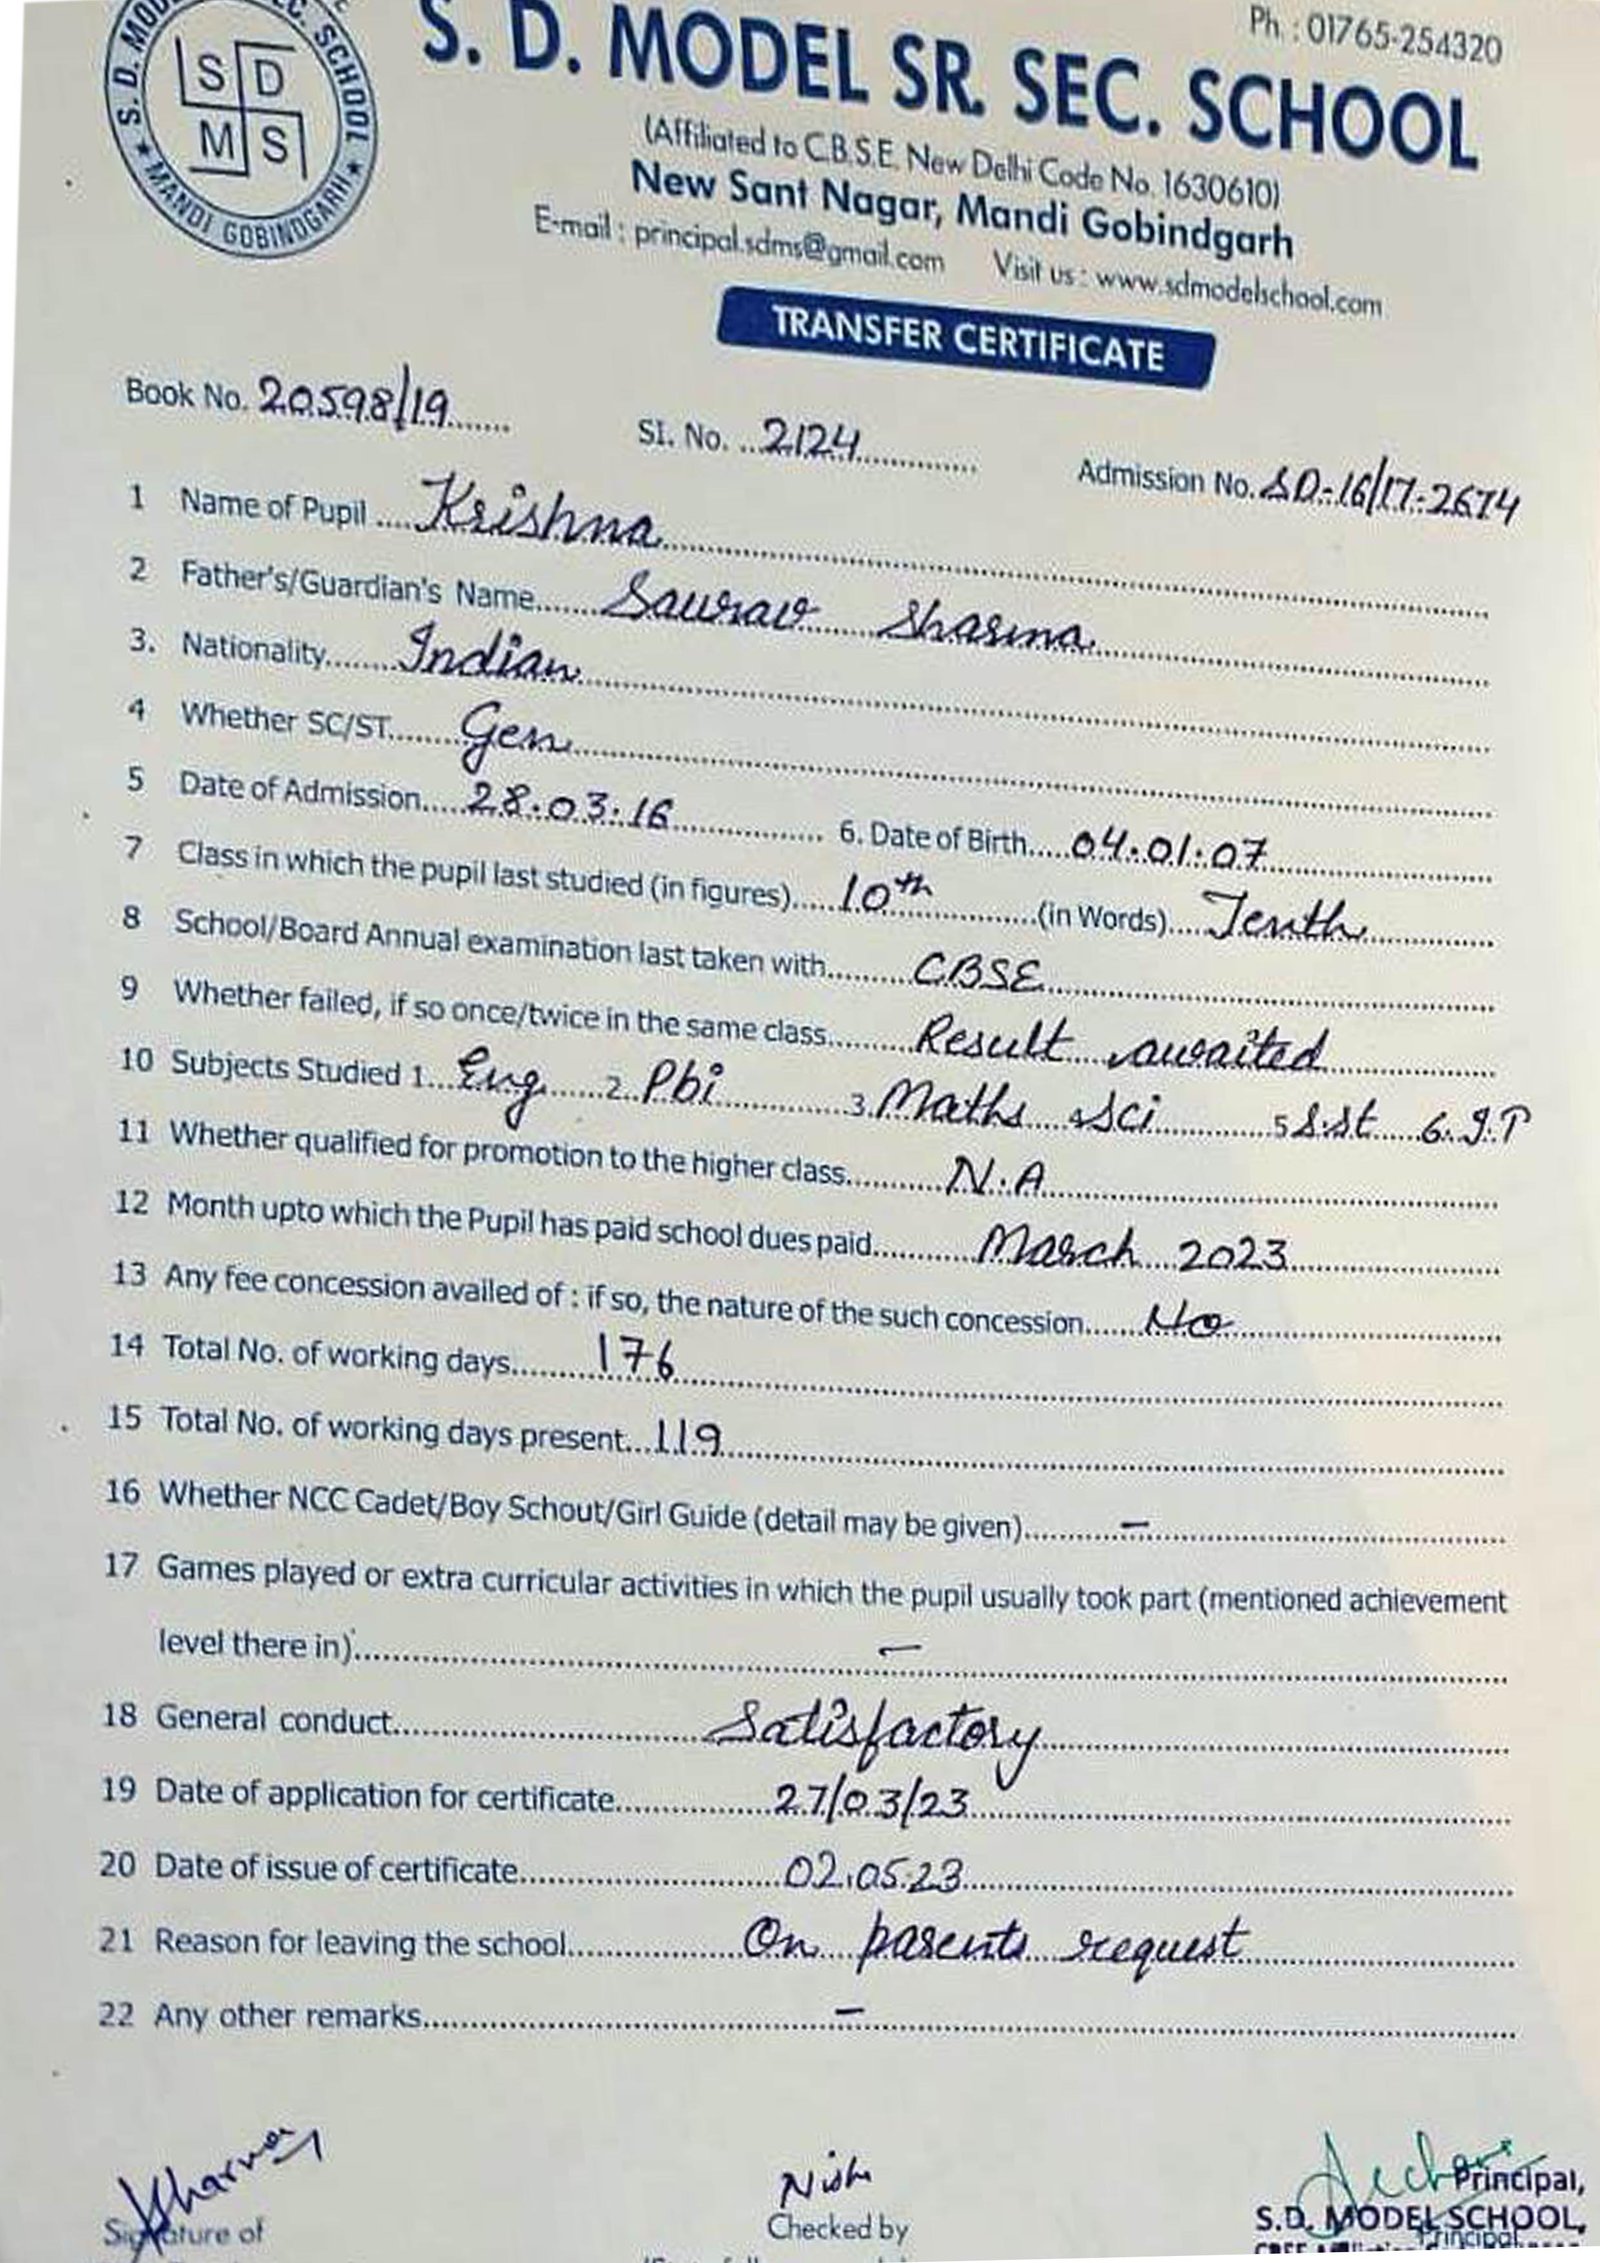 Ph : 01765-254320
S. D. MODEL SR. SEC. SCHOOL
S. D. MODEL SEC. SCHOOL
S D
M S
MANDI GOBINDGARH
(Affiliated to C.B.S.E. New Delhi Code No. 1630610)
New Sant Nagar, Mandi Gobindgarh
E-mail : principal.sdms@gmail.com Visit us : www.sdmodelschool.com
TRANSFER CERTIFICATE
Book No. 20598/19 SI. No. 2124 Admission No. SD-16/17-2674
1 Name of Pupil Krishna
2 Father's/Guardian's Name Saurav Sharma
3. Nationality Indian
4 Whether SC/ST Gen
5 Date of Admission 28.03.16 6. Date of Birth 04.01.07
7 Class in which the pupil last studied (in figures) 10th (in Words) Tenth
8 School/Board Annual examination last taken with CBSE
9 Whether failed, if so once/twice in the same class Result awaited
10 Subjects Studied 1 Eng 2 Pbi 3 Maths 4 Sci 5 S.St 6. I.T
11 Whether qualified for promotion to the higher class N.A
12 Month upto which the Pupil has paid school dues paid March 2023
13 Any fee concession availed of : if so, the nature of the such concession No
14 Total No. of working days 176
15 Total No. of working days present 119
16 Whether NCC Cadet/Boy Schout/Girl Guide (detail may be given) –
17 Games played or extra curricular activities in which the pupil usually took part (mentioned achievement
level there in) –
18 General conduct Satisfactory
19 Date of application for certificate 27/03/23
20 Date of issue of certificate 02.05.23
21 Reason for leaving the school On parents request
22 Any other remarks –
Sharma Nish
Signature of Checked by Principal,
S.D. MODEL SCHOOL,
Principal